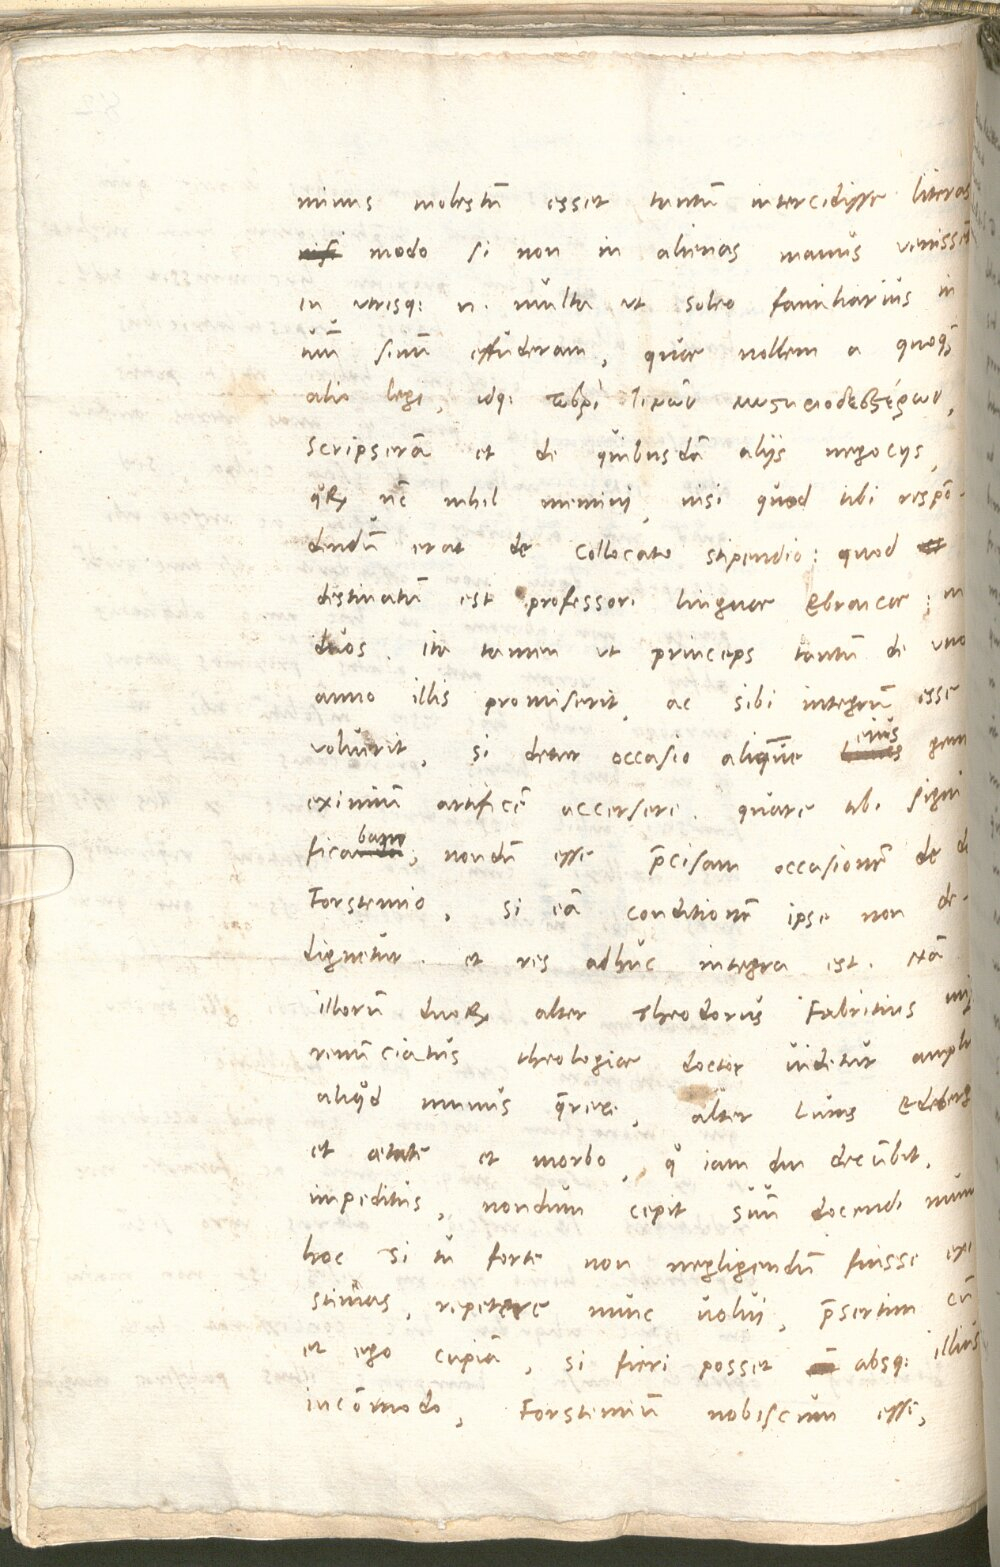 minus molestū esset tantū intercidisse literas
nisi modo si non in alienas manus venissent
in utrisq; n. multa ut soleo familiarius in
tuū sinū effuderam, quae nollem a quoq̄
alio legi, idq;
scripserā et de quibusdā aliis negociis,
qꝝ nc̄ nihil memini, nisi quod tibi respō-
dendū erat de collocato stipendio: quod
destinatū est professori linguae Ebraicae: in
duos. ita tamen ut princeps tantū de uno
anno illis promiserit, ac sibi integrū esse
voluerit, si detur occasio aliquē eius gen
eximiū artificē accersere. quare tibi signi
ficabam, nondū esse p̄cisam occasionē de d
Forstemio, si eā conditionē ipse non de-
dignetur. et res adhuc integra est. etā
illorū duoꝝ alter Theodorus Fabritius
renūciatus theologiae doctor videtur ampli
aliqd munus q̄rere, alter Lucas Edeberg
et aetate et morbo, q iam diu decūbit,
impeditus, nondum cepit suū docendi mun
hoc si tu forte non negligendū fuisse exi
stimas, repetere nunc volui, p̄sertim cū
et ego cupiā, si fieri posset absq; illius
incōmodo, Forstemiū nobiscum esse,